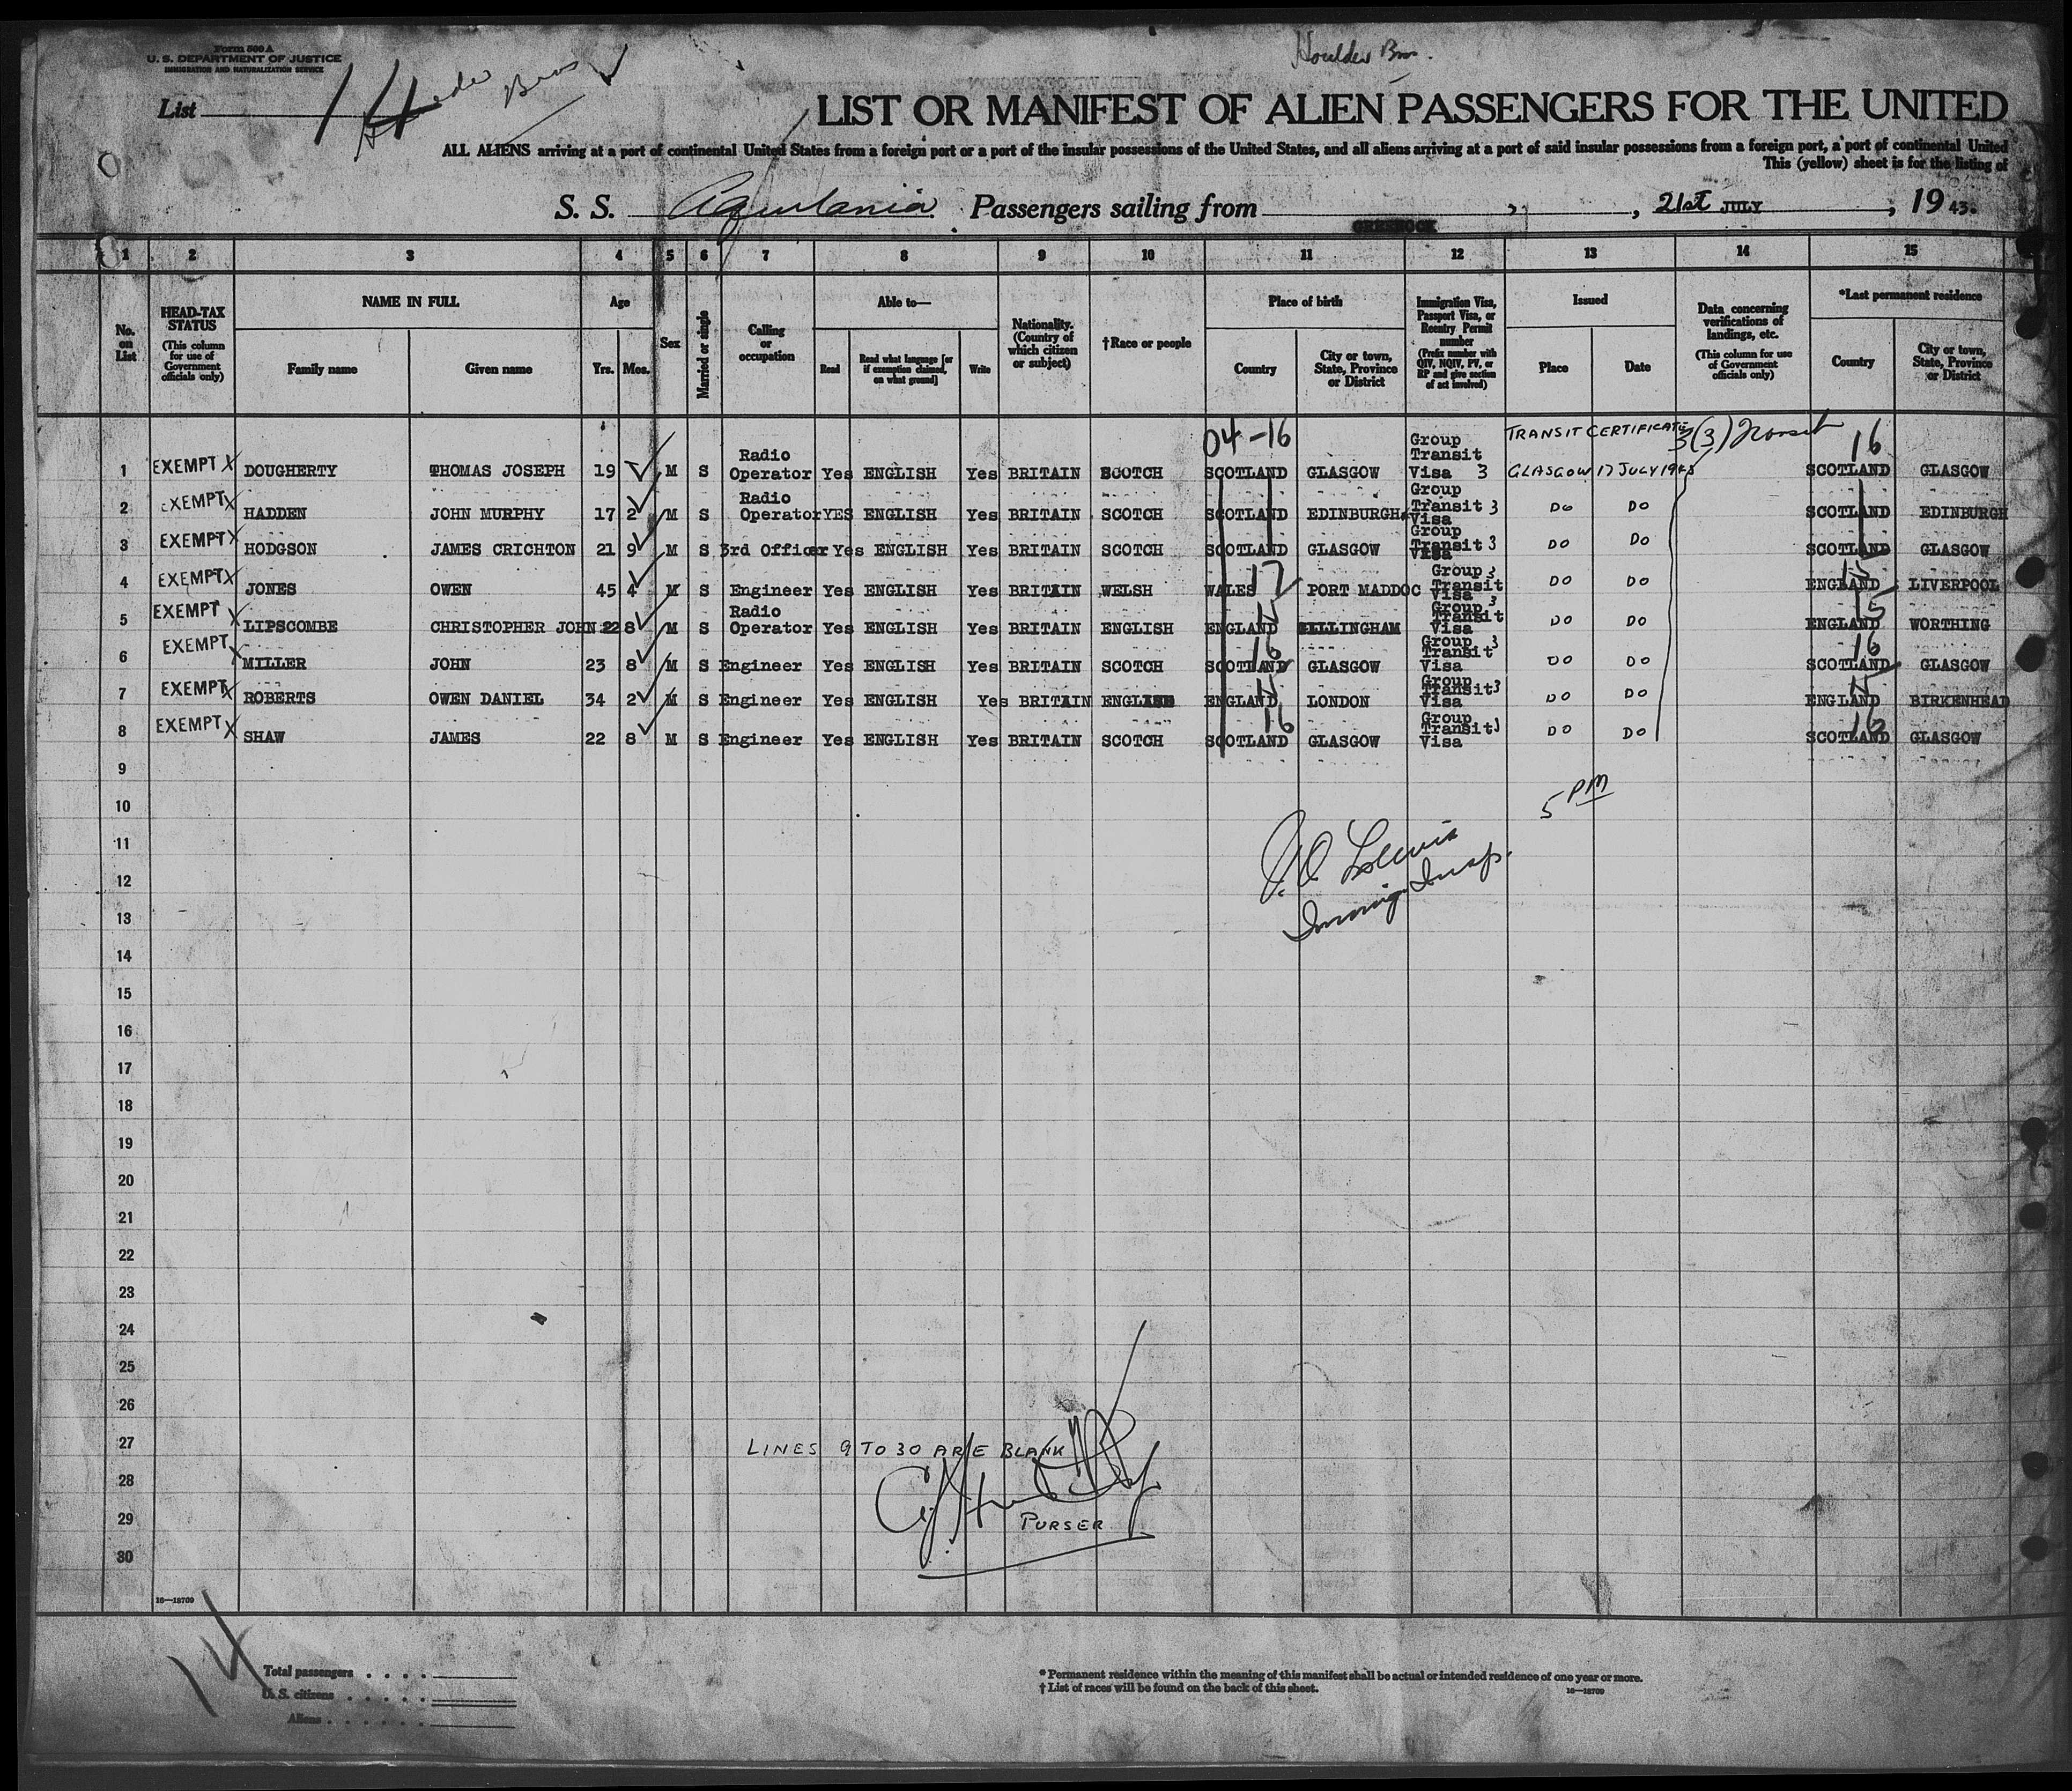 Form 500 A
U. S. DEPARTMENT OF JUSTICE
IMMIGRATION AND NATURALIZATION SERVICE
Houlder Bros.
List 14 Bros
LIST OR MANIFEST OF ALIEN PASSENGERS FOR THE UNITED
ALL ALIENS arriving at a port of continental United States from a foreign port or a port of the insular possessions of the United States, and all aliens arriving at a port of said insular possessions from a foreign port, a port of continental United
This (yellow) sheet is for the listing of
S. S. Aquitania Passengers sailing from GREENOCK, 21st JULY, 1943.
1 2 3 4 5 6 7 8 9 10 11 12 13 14 15
No. on List
HEAD-TAX STATUS (This column for use of Government officials only)
NAME IN FULL Family name Given name
Age Yrs. Mos.
Sex
Married or single
Calling or occupation
Able to— Read Read what language [or if exemption claimed, on what ground] Write
Nationality. (Country of which citizen or subject)
†Race or people
Place of birth Country City or town, State, Province or District
Immigration Visa, Passport Visa, or Reentry Permit number (Prefix number with QIV, NQIV, PV, or RP and give section of act involved)
Issued Place Date
Data concerning verifications of landings, etc. (This column for use of Government officials only)
*Last permanent residence Country City or town, State, Province or District
04-16 TRANSIT CERTIFICATE 3(3) Transit 16
1 EXEMPT X DOUGHERTY THOMAS JOSEPH 19 M S Radio Operator Yes ENGLISH Yes BRITAIN SCOTCH SCOTLAND GLASGOW Group Transit Visa 3 GLASGOW 17 JULY 1943 SCOTLAND GLASGOW
2 EXEMPT X HADDEN JOHN MURPHY 17 2 M S Radio Operator YES ENGLISH Yes BRITAIN SCOTCH SCOTLAND EDINBURGH Group Transit Visa 3 DO DO SCOTLAND EDINBURGH
3 EXEMPT X HODGSON JAMES CRICHTON 21 9 M S 3rd Officer Yes ENGLISH Yes BRITAIN SCOTCH SCOTLAND GLASGOW Group Transit Visa 3 DO DO SCOTLAND GLASGOW
4 EXEMPT X JONES OWEN 45 4 M S Engineer Yes ENGLISH Yes BRITAIN WELSH WALES 17 PORT MADDOC Group Transit Visa 3 DO DO ENGLAND 15 LIVERPOOL
5 EXEMPT X LIPSCOMBE CHRISTOPHER JOHN 22 8 M S Radio Operator Yes ENGLISH Yes BRITAIN ENGLISH ENGLAND 15 GILLINGHAM Group Transit Visa 3 DO DO ENGLAND 15 WORTHING
6 EXEMPT X MILLER JOHN 23 8 M S Engineer Yes ENGLISH Yes BRITAIN SCOTCH SCOTLAND 16 GLASGOW Group Transit Visa 3 DO DO SCOTLAND 16 GLASGOW
7 EXEMPT X ROBERTS OWEN DANIEL 34 2 M S Engineer Yes ENGLISH Yes BRITAIN ENGLISH ENGLAND 15 LONDON Group Transit Visa 3 DO DO ENGLAND 15 BIRKENHEAD
8 EXEMPT X SHAW JAMES 22 8 M S Engineer Yes ENGLISH Yes BRITAIN SCOTCH SCOTLAND 16 GLASGOW Group Transit Visa 3 DO DO SCOTLAND 16 GLASGOW
9
10 5 PM
11 Lewis
12 Immig. Insp.
13
14
15
16
17
18
19
20
21
22
23
24
25
26
27 LINES 9 TO 30 ARE BLANK
28
29 PURSER
30
16—18709
14
Total passengers . . . .
U. S. citizens . . . . .
Aliens . . . . . .
* Permanent residence within the meaning of this manifest shall be actual or intended residence of one year or more.
† List of races will be found on the back of this sheet.
16—18709